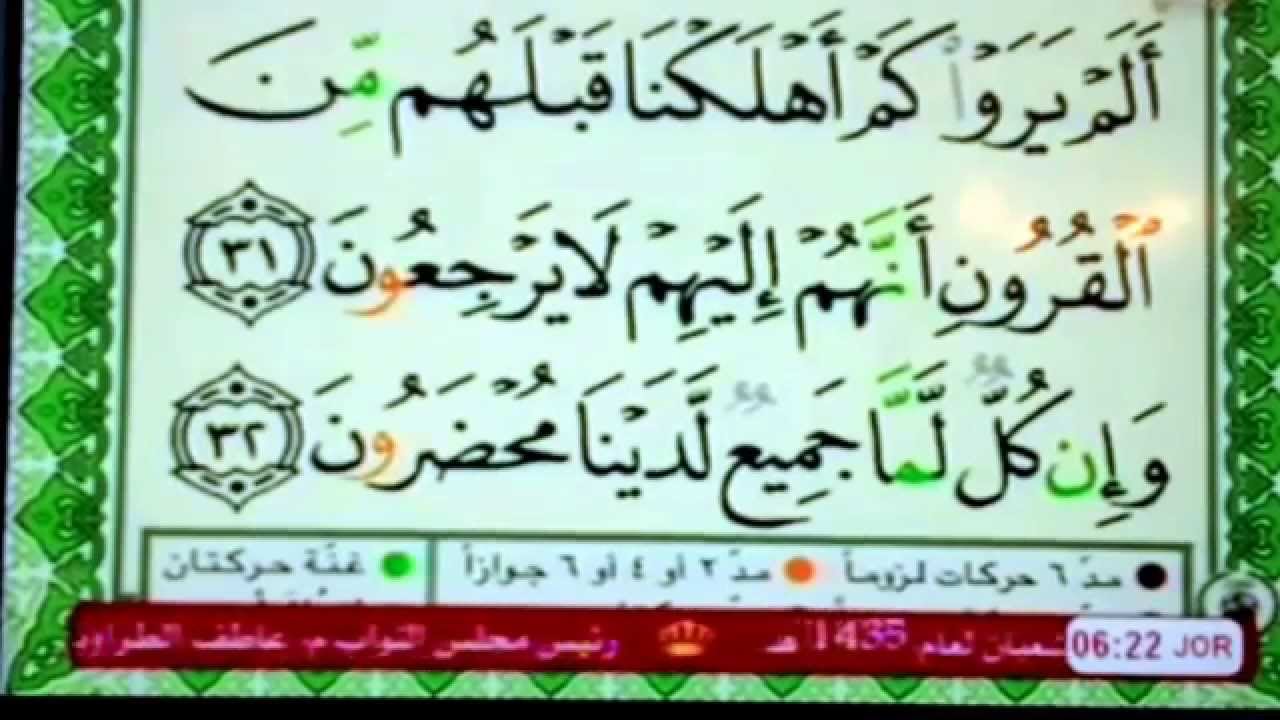 أَلَمْ يَرَوْا۟ كَمْ أَهْلَكْنَا قَبْلَهُم مِّنَ
ٱلْقُرُونِ أَنَّهُمْ إِلَيْهِمْ لَا يَرْجِعُونَ ٣١
وَإِن كُلٌّ لَّمَّا جَمِيعٌ لَّدَيْنَا مُحْضَرُونَ ٣٢
مدّ ٦ حركات لزوماً مدّ ٢ أو ٤ أو ٦ جوازاً غنّة حركتان
06:22 JOR شعبان لعام 1435 هـ رئيس مجلس النواب م. عاطف الطراونة